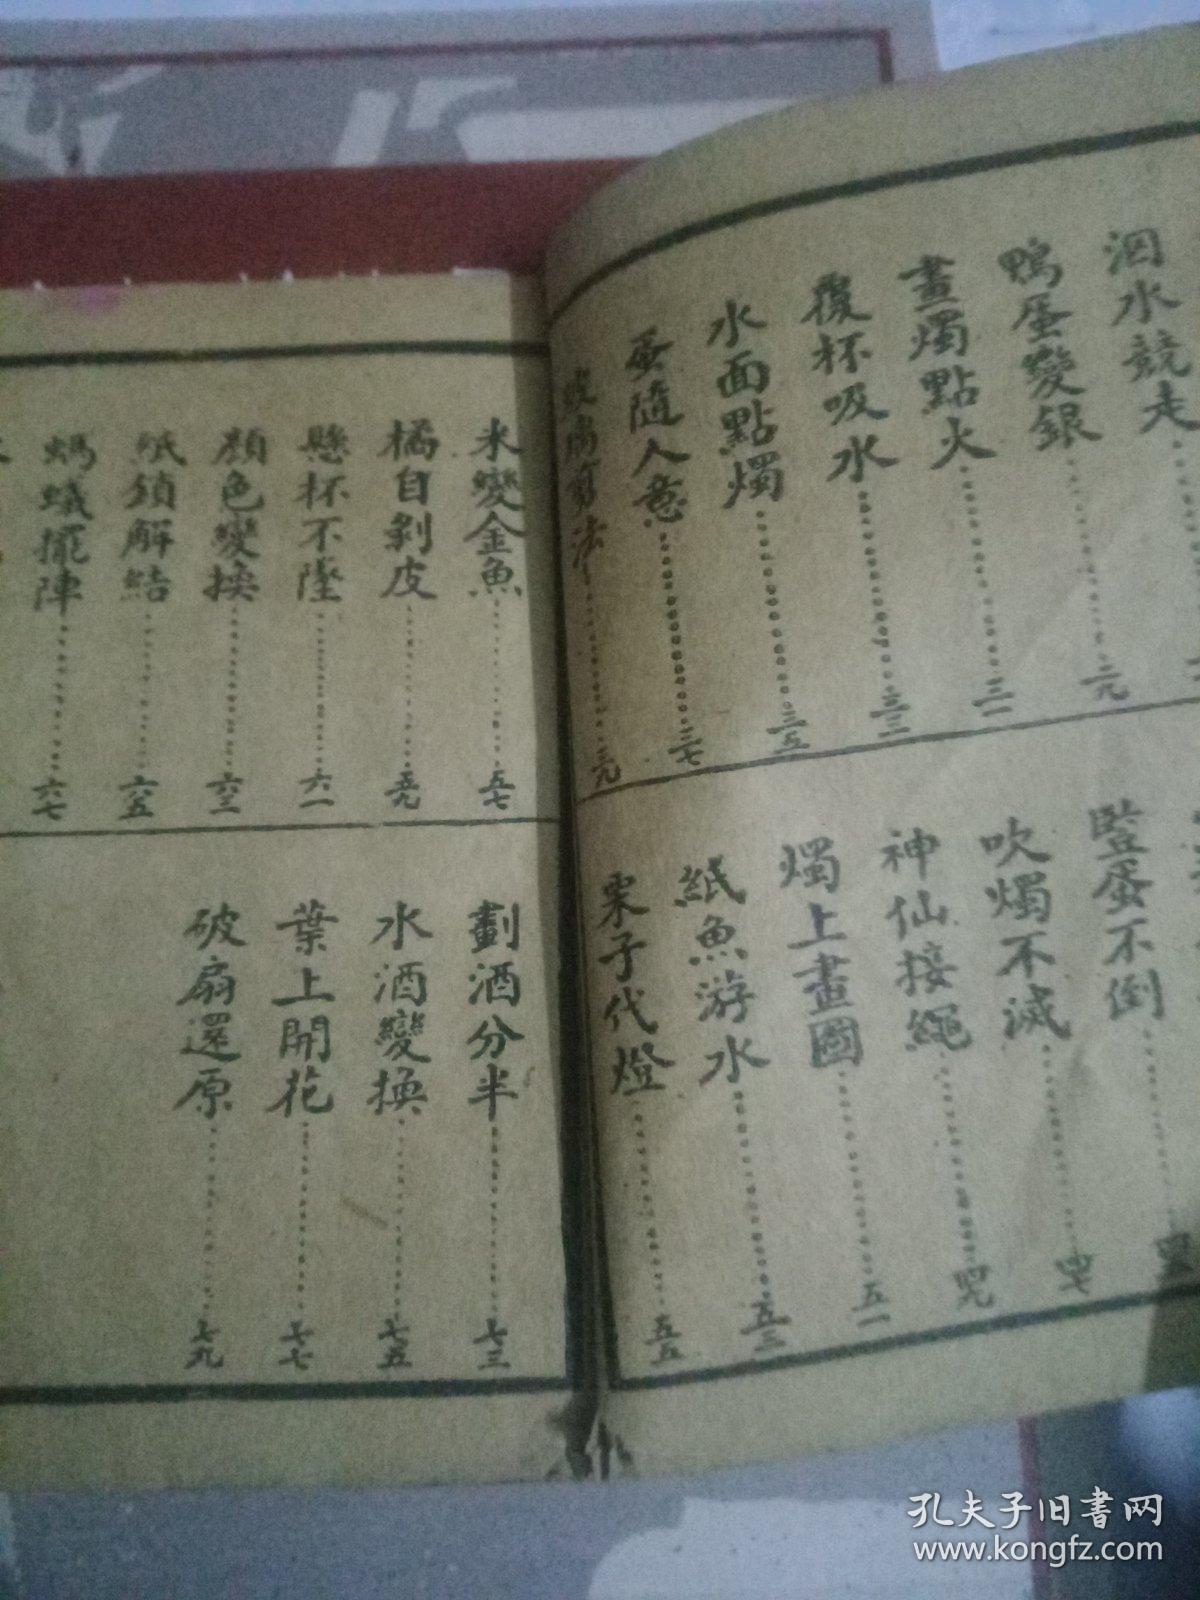 泅水競走
鴨蛋變銀……二九
畫燭點火……三一
覆杯吸水……三三
水面點燭……三五
蛋隨人意……三七
法……三九
豎蛋不倒
吹燭不滅……四七
神仙接繩……四九
燭上畫圖……五一
紙魚游水……五三
栗子代燈……五五
米變金魚……五七
橘自剝皮……五九
懸杯不墜……六一
顏色變換……六三
紙須解結……六五
螞蟻擺陣……六七
劃酒分半……七三
水酒變換……七五
葉上開花……七七
破扇還原……七九
孔夫子旧书网
www.kongfz.com